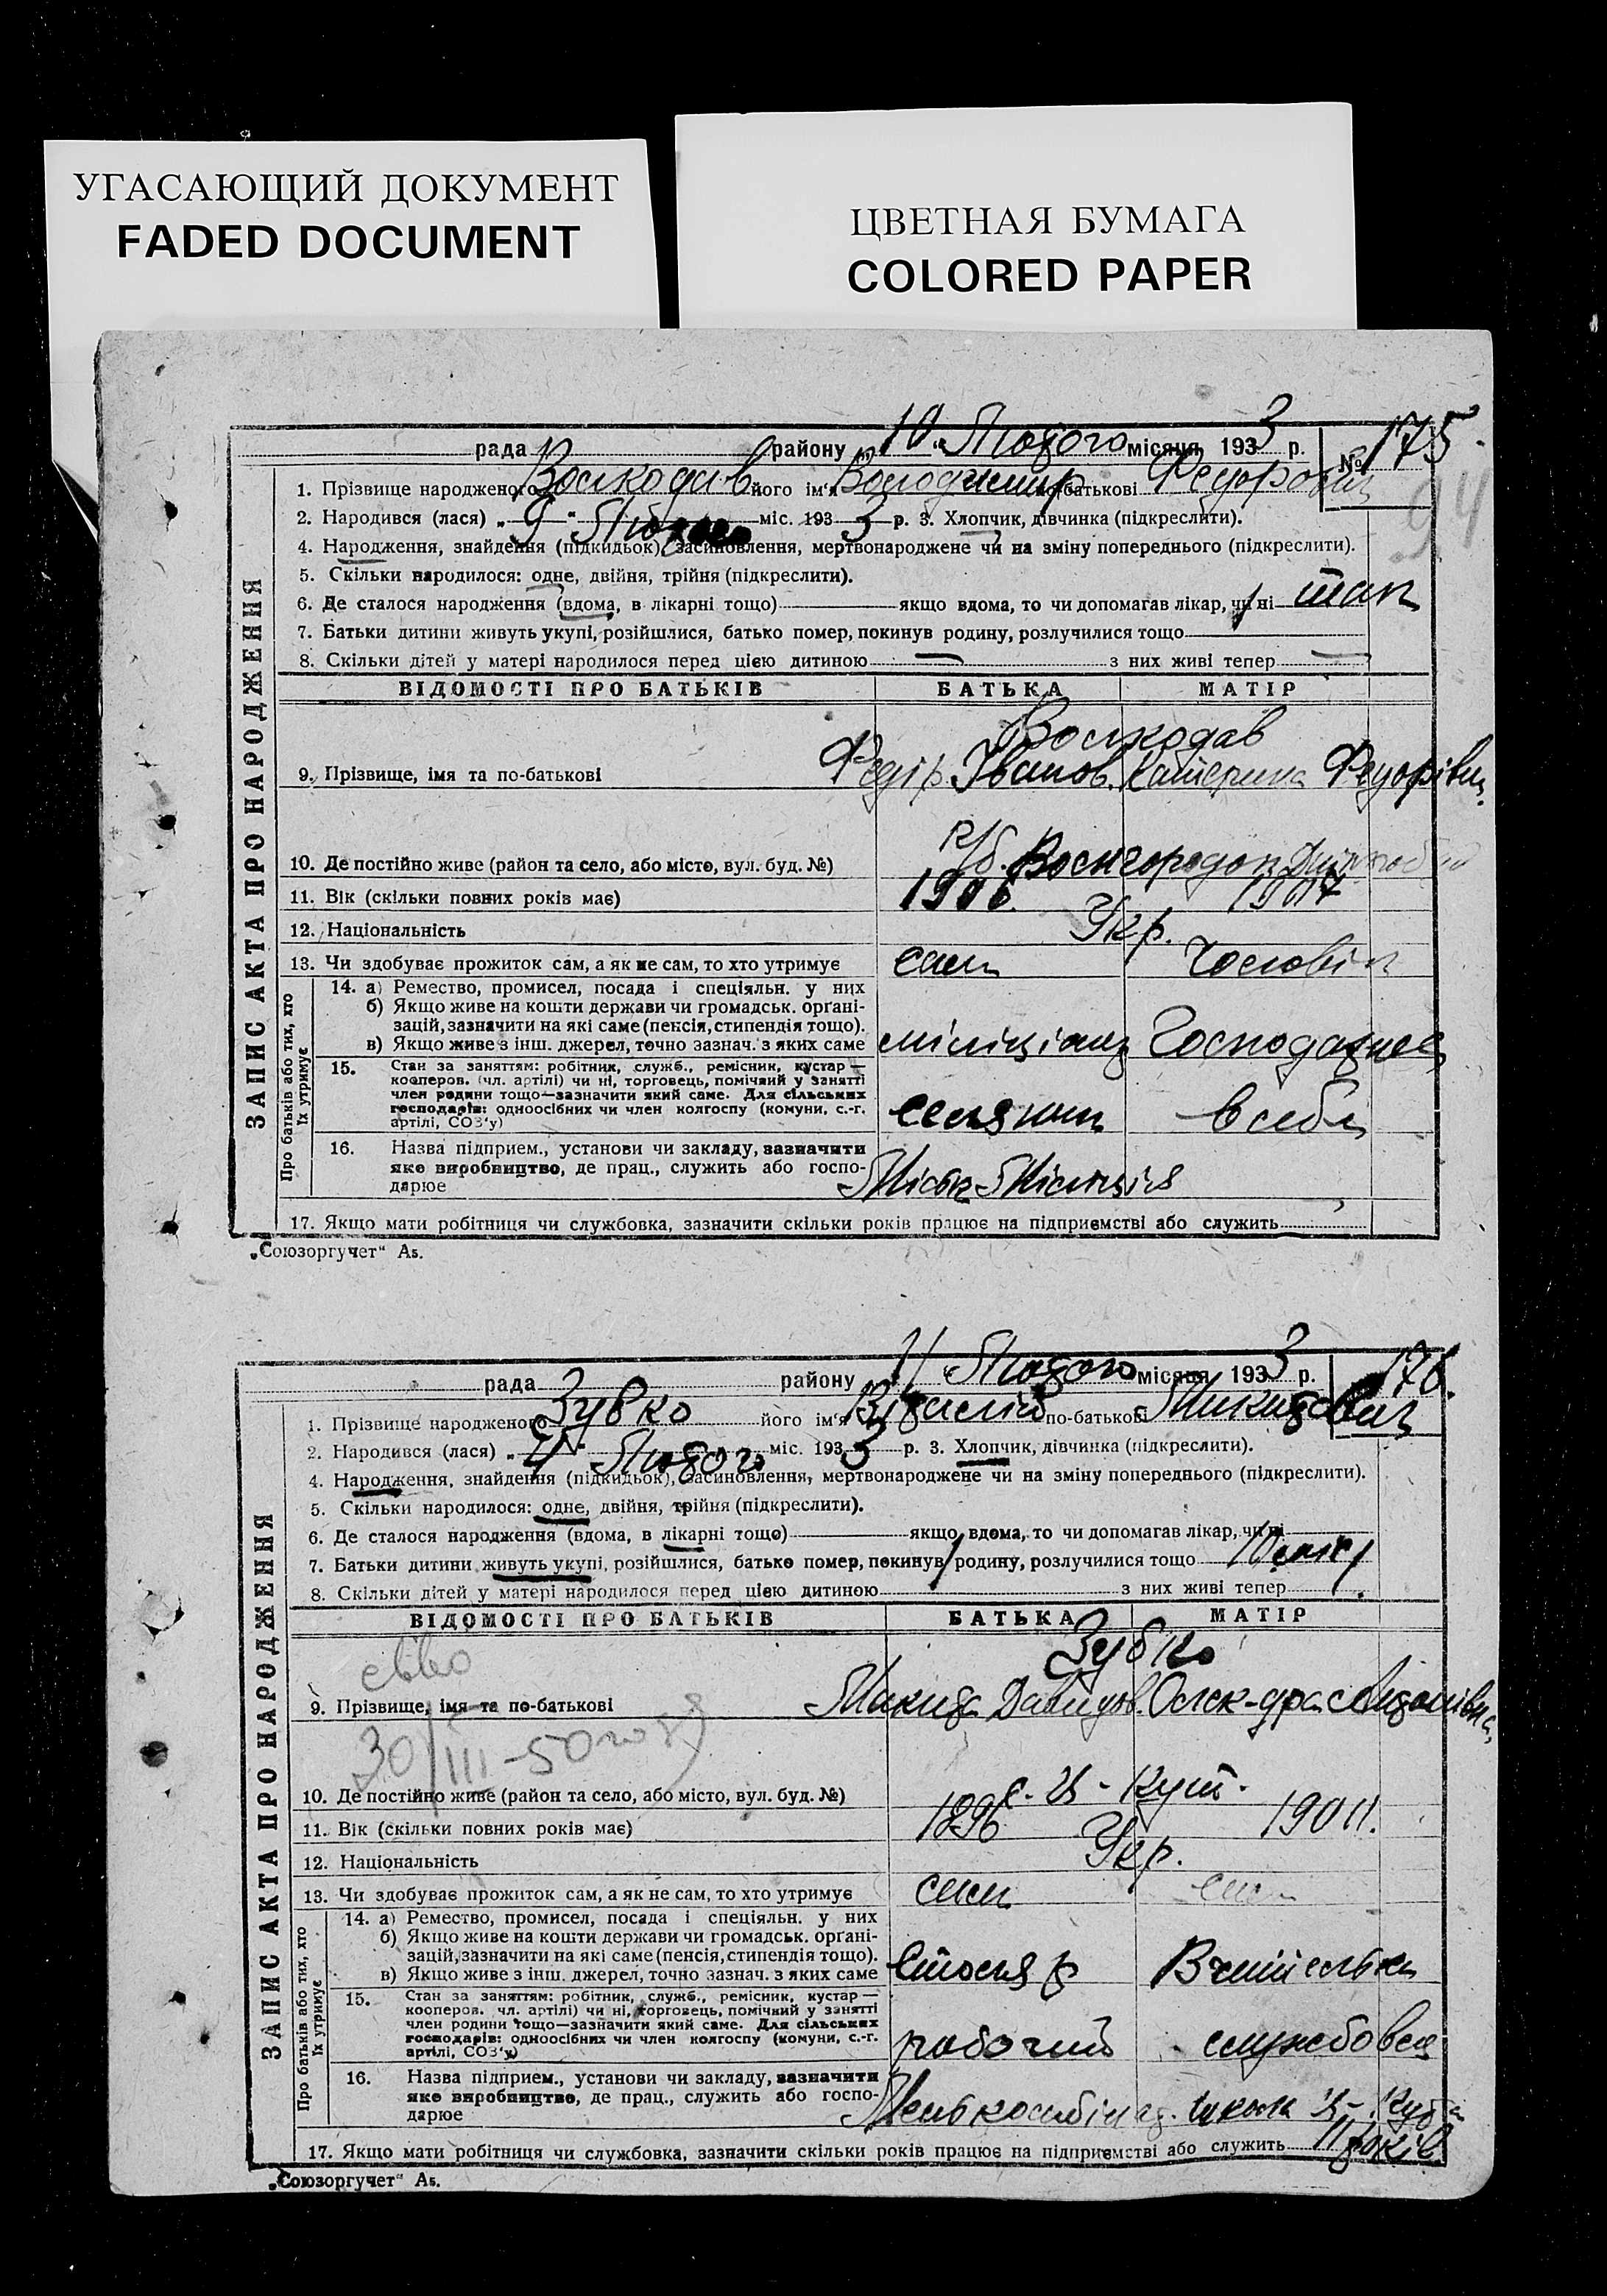 УГАСАЮЩИЙ ДОКУМЕНТ
FADED DOCUMENT
ЦВЕТНАЯ БУМАГА
COLORED PAPER
рада району 10 Лютого місяця 1933 р. № 175
94
1. Прізвище народженого Волкодав його ім'я Володимир по-батькові Федорович
2. Народився (лася) „ 9 “ Лютого міс. 1933 р. 3. Хлопчик, дівчинка (підкреслити).
4. Народження, знайдення (підкидьок), засиновлення, мертвонароджене чи на зміну попереднього (підкреслити).
5. Скільки народилося: одне, двійня, трійня (підкреслити).
6. Де сталося народження (вдома, в лікарні тощо) якщо вдома, то чи допомагав лікар, чи ні так
7. Батьки дитини живуть укупі, розійшлися, батько помер, покинув родину, розлучилися тощо
8. Скільки дітей у матері народилося перед цією дитиною — з них живі тепер —
ЗАПИС АКТА ПРО НАРОДЖЕННЯ
ВІДОМОСТІ ПРО БАТЬКІВ БАТЬКА МАТІР
Волкодав
9. Прізвище, імя та по-батькові Федір Іванов. Катерина Федорівна
10. Де постійно живе (район та село, або місто, вул. буд. №)
11. Вік (скільки повних років має) 1906 1907
12. Національність Укр.
13. Чи здобуває прожиток сам, а як не сам, то хто утримує сам Чоловік
Про батьків або тих, хто їх утримує
14. а) Ремество, промисел, посада і спеціяльн. у них
б) Якщо живе на кошти держави чи громадськ. орґані-
зацій, зазначити на які саме (пенсія, стипендія тощо).
в) Якщо живе з інш. джерел, точно зазнач. з яких саме міліціонер
15. Стан за заняттям: робітник, служб., ремісник, кустар —
кооперов. (чл. артілі) чи ні, торговець, помічний у занятті
член родини тощо—зазначити який саме. Для сільських
господарів: одноосібних чи член колгоспу (комуни, с.-г.
артілі, СОЗ'у) селянин в себе
16. Назва підприєм., установи чи закладу, зазначити
яке виробництво, де прац., служить або госпо-
дарює Міськ Міліція
17. Якщо мати робітниця чи службовка, зазначити скільки років працює на підприємстві або служить
„Союзоргучет“ А5.
рада району 11 Лютого місяця 1933 р. 176.
1. Прізвище народженого Зубко його ім'я Віталій по-батькові Микитович
2. Народився (лася) „ 4 “ Лютого міс. 1933 р. 3. Хлопчик, дівчинка (підкреслити).
4. Народження, знайдення (підкидьок), засиновлення, мертвонароджене чи на зміну попереднього (підкреслити).
5. Скільки народилося: одне, двійня, трійня (підкреслити).
6. Де сталося народження (вдома, в лікарні тощо) якщо вдома, то чи допомагав лікар, чи ні
7. Батьки дитини живуть укупі, розійшлися, батько помер, покинув родину, розлучилися тощо
8. Скільки дітей у матері народилося перед цією дитиною з них живі тепер
ЗАПИС АКТА ПРО НАРОДЖЕННЯ
ВІДОМОСТІ ПРО БАТЬКІВ БАТЬКА МАТІР
Зубко
9. Прізвище, імя та по-батькові Микита Давидов. Олек-дра
30/III-50
10. Де постійно живе (район та село, або місто, вул. буд. №) с. Ш-Кут.
11. Вік (скільки повних років має) 1896 1901
12. Національність Укр.
13. Чи здобуває прожиток сам, а як не сам, то хто утримує сам сам
Про батьків або тих, хто їх утримує
14. а) Ремество, промисел, посада і спеціяльн. у них
б) Якщо живе на кошти держави чи громадськ. орґані-
зацій, зазначити на які саме (пенсія, стипендія тощо).
в) Якщо живе з інш. джерел, точно зазнач. з яких саме Столяр Вчителька
15. Стан за заняттям: робітник, служб., ремісник, кустар —
кооперов. чл. артілі) чи ні, торговець, помічний у занятті
член родини тощо—зазначити який саме. Для сільських
господарів: одноосібних чи член колгоспу (комуни, с.-г.
артілі, СОЗ'у) рабочий службовец
16. Назва підприєм., установи чи закладу, зазначити
яке виробництво, де прац., служить або госпо-
дарює школа
17. Якщо мати робітниця чи службовка, зазначити скільки років працює на підприємстві або служить 11 років
„Союзоргучет“ А5.